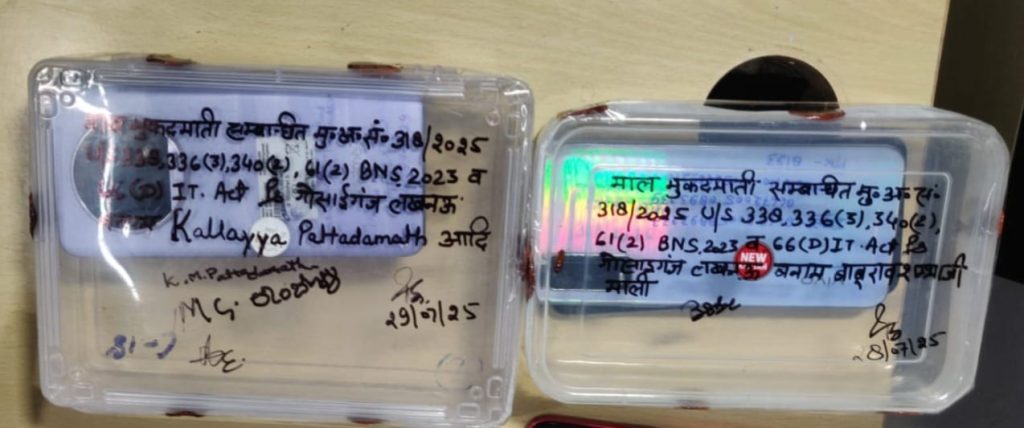 माल मुकदमाती सम्बान्धित मु०अ०सं० 318/2025
U/S 338, 336(3), 340(2), 61(2) BNS 2023 व
66(D) IT. Act Ps गोसाईगंज लखनऊ
बनाम Kallayya Pattadamath आदि
K. M. Pattadamath
M G.
29/7/25
माल मुकदमाती सम्बान्धित मु० अ० सं०
318/2025 U/S 338, 336(3), 340(2),
61(2) BNS, 223 व 66(D) IT. Act Ps
NEW
गोसाईगंज लखनऊ बनाम
माली
28/07/25